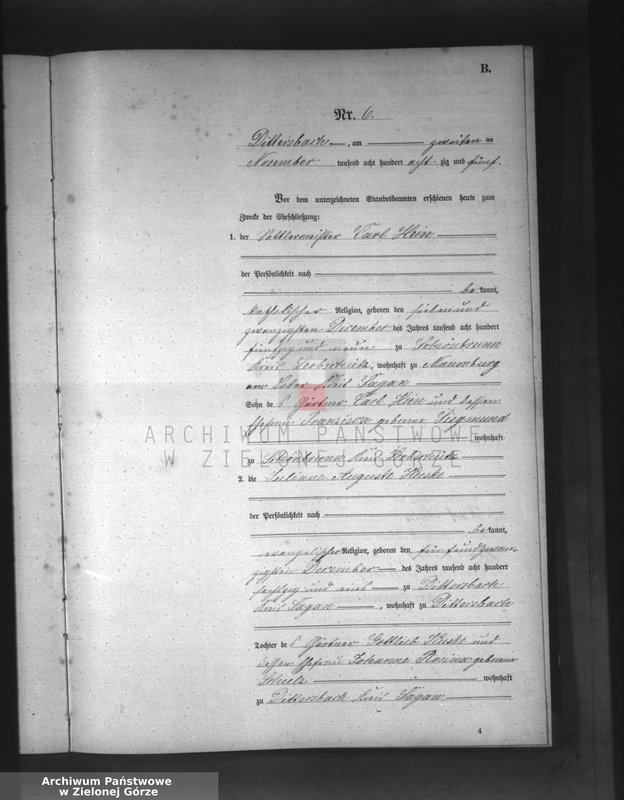 B.
Nr. 6.
Dittersbach, am zweiten
November tausend acht hundert acht zig und fünf.
Vor dem unterzeichneten Standesbeamten erschienen heute zum
Zwecke der Eheschließung:
1. der Sattlermeister Karl Hein
der Persönlichkeit nach
be kannt,
katholischer Religion, geboren den sieben und
zwanzigsten December des Jahres tausend acht hundert
fünfzig und neun zu Schönbrunn
Kreis, wohnhaft zu Naumburg
am Bober Kreis Sagan
Sohn de s Gärtner Karl Hein und dessen
Ehefrau Franzisca geborene Siegmund
wohnhaft
zu Schönbrunn Kreis
2. die Juliane Auguste
der Persönlichkeit nach
be kannt,
evangelischer Religion, geboren den fünfundzwan
zigsten December des Jahres tausend acht hundert
sechzig und zu Dittersbach
Kreis Sagan, wohnhaft zu Dittersbach
Tochter de s Gärtner Gottlieb und
dessen Ehefrau Johanne Rosina geborene
Schulz wohnhaft
zu Dittersbach Kreis Sagan
4
ARCHIWUM PAŃSTWOWE
W ZIELONEJ GÓRZE
Archiwum Państwowe
w Zielonej Górze